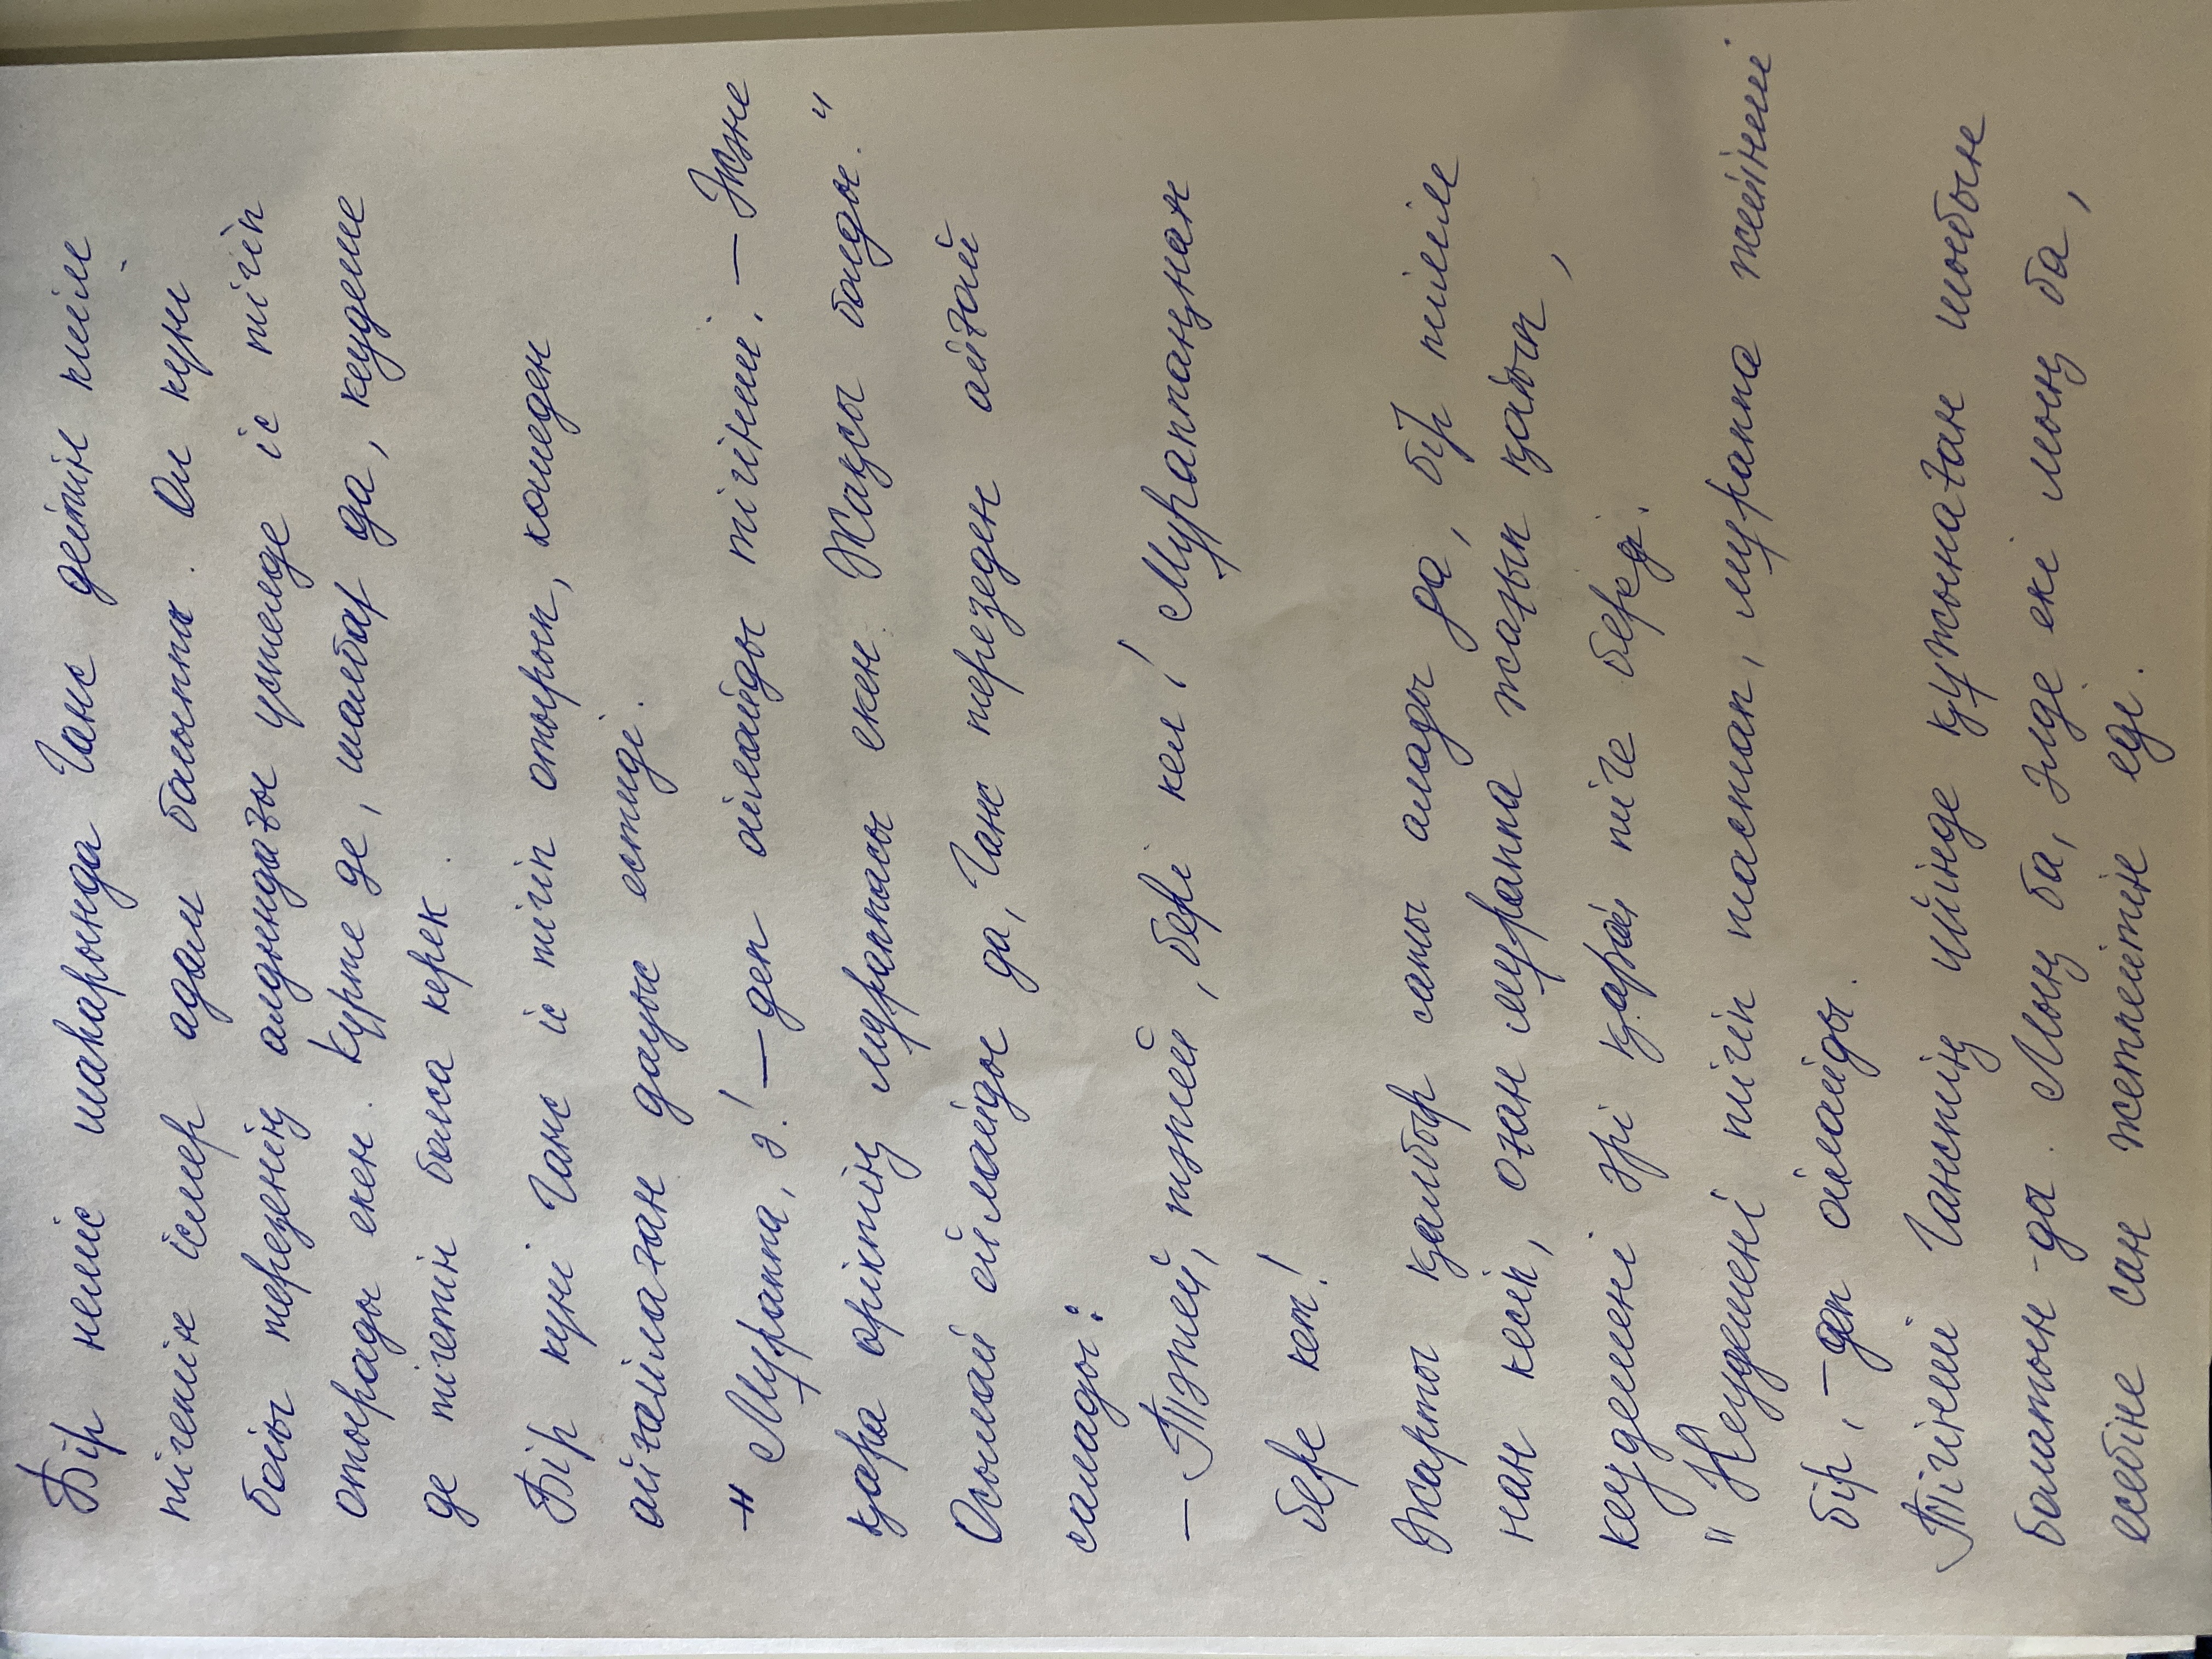 Бір неміс шаһарында Ганс дейтін киім
тігетін ісмер адам болыпты. Ол күні
бойы терезенің алдындағы үстелде іс тігіп
отырады екен. Күрте де, шалбар да, кеудеше
де тігетін болса керек.
Бір күні Ганс іс тігіп отырып, көшеден
айғайлаған дауыс естиді.
"Мұраппа, ә! – деп ойлайды тігінші. – Және
қара өріктің мұраппасы екен. Жақсы болды."
Осылай ойлайды да, Ганс терезеден айғай
салады:
– Тәтей, тәтей, бері кел! Мұраппаңнан
бере кет!
Жарты қалбыр сатып алады да, бір тілім
нан кесіп, оған мұраппа жағып қойып,
кеудешені әрі қарай тіге береді.
"Кеудешені тігіп тастап, мұраппа жейінші
бір, – деп ойлайды.
Тігінші Ганстің үйінде құжынаған шыбын
болатын-ды. Мың ба, әлде екі мың ба,
есебіне сан жетпейтін еді.